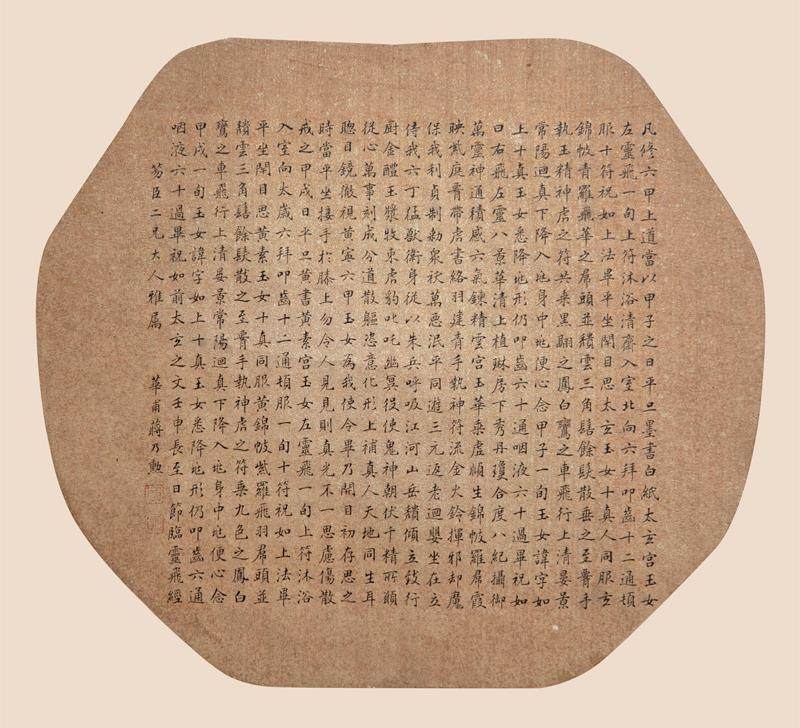 凡修六甲上道當以甲子之日平旦墨書白紙太玄宮玉女
左靈飛一旬上符沐浴清齋入室北向六拜叩齒十二通頓
服十符祝如上法畢平坐閉目思太玄玉女十真人同服玄
錦帔青羅飛華之帬頭並積雲三角髻餘髮散垂之至腰手
執玉精神虎之符共乘黑翮之鳳白鸞之車飛行上清晏景
常陽迴真下降入兆身中兆便心念甲子一旬玉女諱字如
上十真玉女悉降兆形仍叩齒六十通咽液六十過畢祝如
曰右飛左靈八景華清上植琳房下秀丹瓊合度八紀攝御
萬靈神通積感六氣鍊精雲宮玉華乘虛順生錦帔羅帬霞
映紫庭腰帶虎書絡羽建青手執神符流金火鈴揮邪却魔
保我利貞制勑衆祅萬惡泯平同遊三元返老迴嬰坐在立
侍我六丁猛獸衛身從以朱兵呼吸江河山岳頹傾立致行
厨金醴玉漿牧束虎豹叱吒幽冥役使鬼神朝伏千精所願
從心萬事剋成分道散軀恣意化形上補真人天地同生耳
聰目鏡徹視黃寧六甲玉女為我使令畢乃開目初存思之
時當平坐接手於膝上勿令人見見則真光不一思慮傷散
戒之甲戌日平旦黃書黃素宮玉女左靈飛一旬上符沐浴
入室向太歲六拜叩齒十二通頓服一旬十符祝如上法畢
平坐閉目思黃素玉女十真同服黃錦帔紫羅飛羽帬頭並
積雲三角髻餘髮散之至腰手執神虎之符乘九色之鳳白
鸞之車飛行上清晏景常陽迴真下降入兆身中兆便心念
甲戌一旬玉女諱字如上十真玉女悉降兆形仍叩齒六通
咽液六十過畢祝如前太玄之文壬申長至日節臨靈飛經
芴臣二兄大人雅属
華甫蔣乃勳